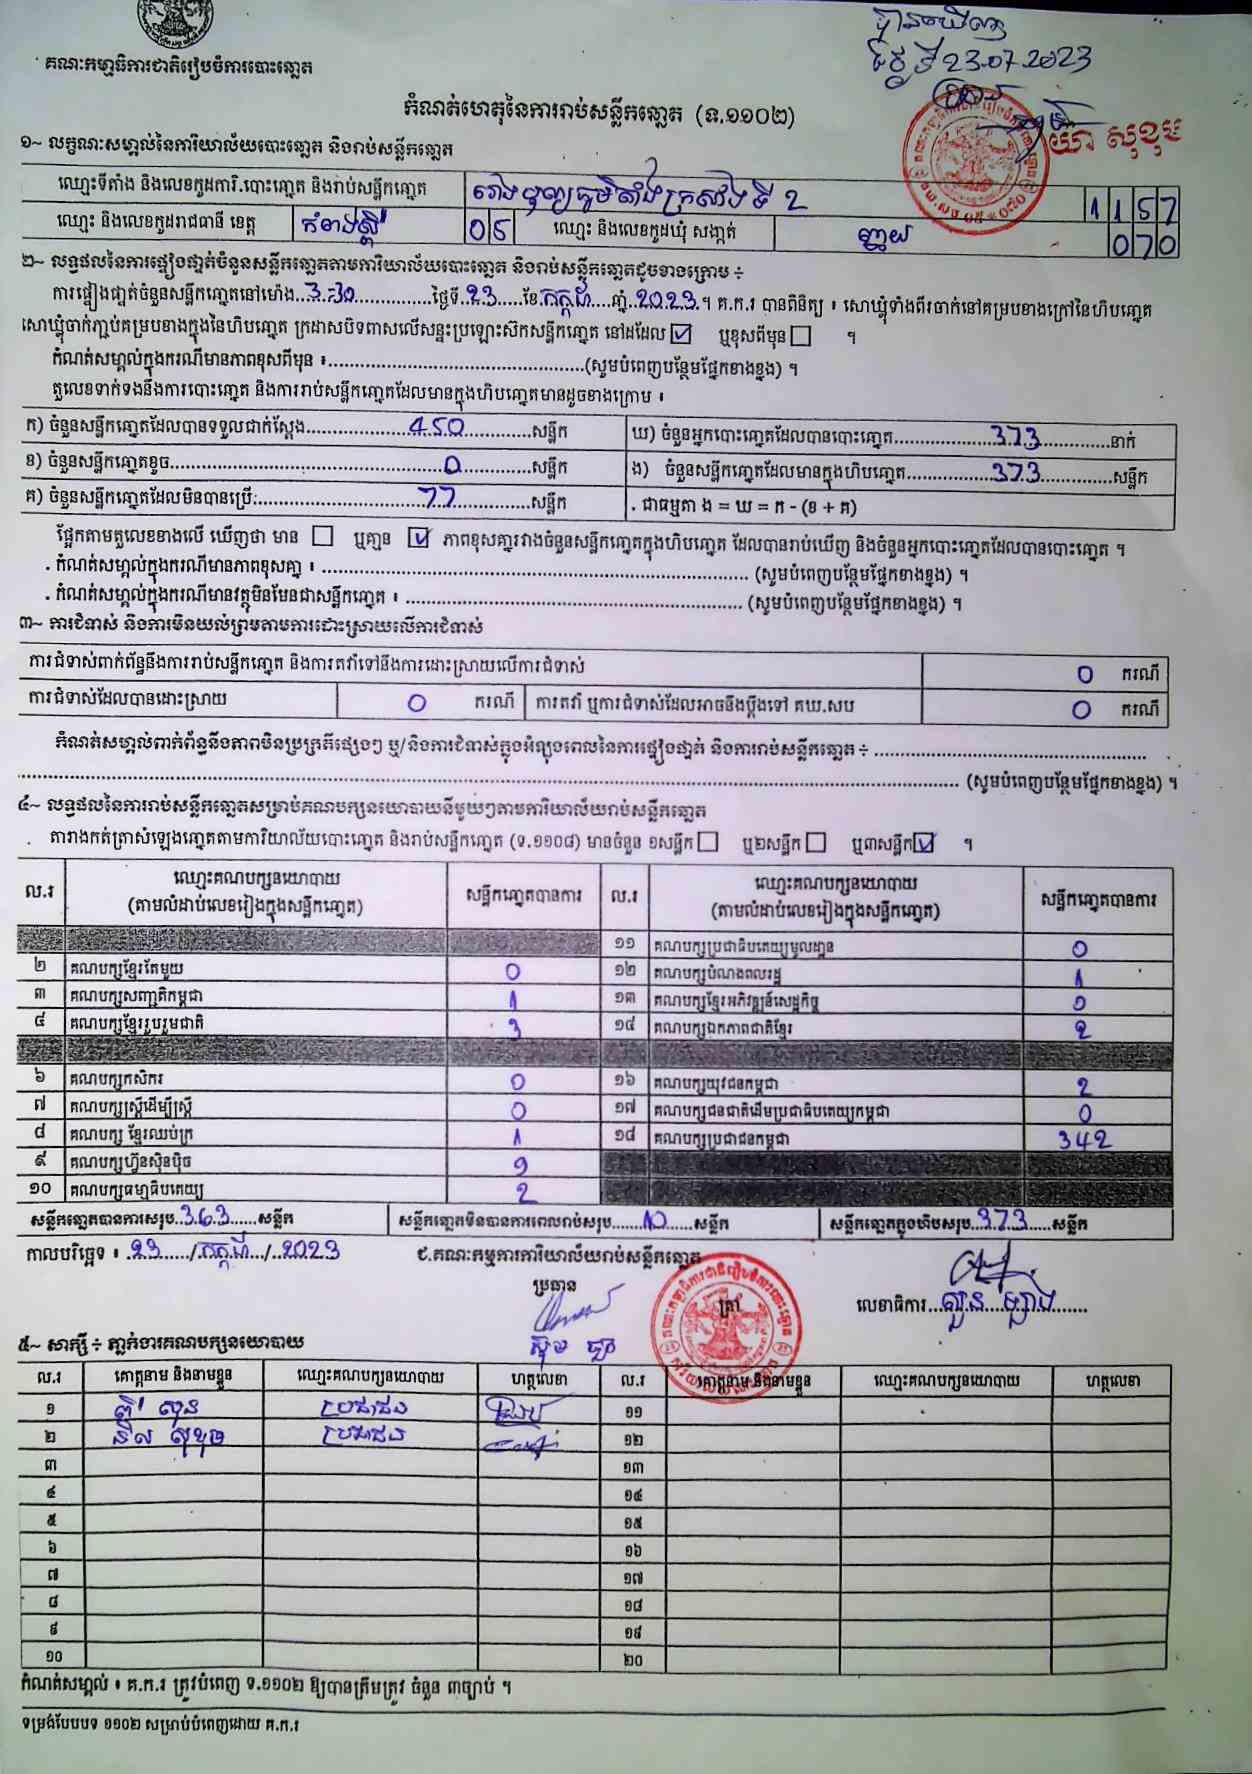 គណៈកម្មាធិការជាតិរៀបចំការបោះឆ្នោត
បានឃើញ
ថ្ងៃទី 23.07.2023
កំណត់ហេតុនៃការរាប់សន្លឹកឆ្នោត (ទ.១១០២)
យ៉ា សុខុម
១~ លក្ខណៈសម្គាល់នៃការិយាល័យបោះឆ្នោត និងរាប់សន្លឹកឆ្នោត
ឈ្មោះទីតាំង និងលេខកូដការិ.បោះឆ្នោត និងរាប់សន្លឹកឆ្នោត 2 1157
ឈ្មោះ និងលេខកូដរាជធានី ខេត្ត កំពង់ស្ពឺ 05 ឈ្មោះ និងលេខកូដឃុំ សង្កាត់ 070
២~ លទ្ធផលនៃការផ្ទៀងផ្ទាត់ចំនួនសន្លឹកឆ្នោតតាមការិយាល័យបោះឆ្នោត និងរាប់សន្លឹកឆ្នោតដូចខាងក្រោម ÷
ការផ្ទៀងផ្ទាត់ចំនួនសន្លឹកឆ្នោតនៅម៉ោង...3:30...ថ្ងៃទី..23...ខែ.កក្កដា...ឆ្នាំ.2023.។ គ.ក.រ បានពិនិត្យ ៖ សោឃ្មុំទាំងពីរចាក់នៅគម្របខាងក្រៅនៃហិបឆ្នោត
សោឃ្មុំចាក់ភ្ជាប់គម្របខាងក្នុងនៃហិបឆ្នោត ក្រដាសបិទពាសលើសន្ទះប្រឡោះស៊កសន្លឹកឆ្នោត នៅដដែល ☑ ឬខុសពីមុន ☐ ។
កំណត់សម្គាល់ក្នុងករណីមានភាពខុសពីមុន ៖...(សូមបំពេញបន្ថែមផ្នែកខាងខ្នង) ។
តួលេខទាក់ទងនឹងការបោះឆ្នោត និងការរាប់សន្លឹកឆ្នោតដែលមានក្នុងហិបឆ្នោតមានដូចខាងក្រោម ៖
ក) ចំនួនសន្លឹកឆ្នោតដែលបានទទួលជាក់ស្តែង...450...សន្លឹក ឃ) ចំនួនអ្នកបោះឆ្នោតដែលបានបោះឆ្នោត...373...នាក់
ខ) ចំនួនសន្លឹកឆ្នោតខូច...0...សន្លឹក ង) ចំនួនសន្លឹកឆ្នោតដែលមានក្នុងហិបឆ្នោត...373...សន្លឹក
គ) ចំនួនសន្លឹកឆ្នោតដែលមិនបានប្រើ:...77...សន្លឹក . ជាធម្មតា ង = ឃ = ក - (ខ + គ)
ផ្អែកតាមតួលេខខាងលើ ឃើញថា មាន ☐ ឬគ្មាន ☑ ភាពខុសគ្នារវាងចំនួនសន្លឹកឆ្នោតក្នុងហិបឆ្នោត ដែលបានរាប់ឃើញ និងចំនួនអ្នកបោះឆ្នោតដែលបានបោះឆ្នោត ។
. កំណត់សម្គាល់ក្នុងករណីមានភាពខុសគ្នា ៖ ... (សូមបំពេញបន្ថែមផ្នែកខាងខ្នង) ។
. កំណត់សម្គាល់ក្នុងករណីមានវត្ថុមិនមែនជាសន្លឹកឆ្នោត ៖ ... (សូមបំពេញបន្ថែមផ្នែកខាងខ្នង) ។
៣~ ការជំទាស់ និងការមិនយល់ព្រមតាមការដោះស្រាយលើការជំទាស់
ការជំទាស់ពាក់ព័ន្ធនឹងការរាប់សន្លឹកឆ្នោត និងការតវ៉ាទៅនឹងការដោះស្រាយលើការជំទាស់ 0 ករណី
ការជំទាស់ដែលបានដោះស្រាយ 0 ករណី ការតវ៉ា ឬការជំទាស់ដែលអាចនឹងប្តឹងទៅ គឃ.សប 0 ករណី
កំណត់សម្គាល់ពាក់ព័ន្ធនឹងភាពមិនប្រក្រតីផ្សេងៗ ឬ/និងការជំទាស់ក្នុងអំឡុងពេលនៃការផ្ទៀងផ្ទាត់ និងការរាប់សន្លឹកឆ្នោត ÷ ...
... (សូមបំពេញបន្ថែមផ្នែកខាងខ្នង) ។
៤~ លទ្ធផលនៃការរាប់សន្លឹកឆ្នោតសម្រាប់គណបក្សនយោបាយនីមួយៗតាមការិយាល័យរាប់សន្លឹកឆ្នោត
តារាងកត់ត្រាសំឡេងឆ្នោតតាមការិយាល័យបោះឆ្នោត និងរាប់សន្លឹកឆ្នោត (ទ.១១០៨) មានចំនួន ១សន្លឹក ☐ ឬ២សន្លឹក ☐ ឬ៣សន្លឹក ☑ ។
ល.រ ឈ្មោះគណបក្សនយោបាយ (តាមលំដាប់លេខរៀងក្នុងសន្លឹកឆ្នោត) សន្លឹកឆ្នោតបានការ ល.រ ឈ្មោះគណបក្សនយោបាយ (តាមលំដាប់លេខរៀងក្នុងសន្លឹកឆ្នោត) សន្លឹកឆ្នោតបានការ
១១ គណបក្សប្រជាធិបតេយ្យមូលដ្ឋាន 0
២ គណបក្សខ្មែរតែមួយ 0 ១២ គណបក្សបំណងពលរដ្ឋ 1
៣ គណបក្សសញ្ជាតិកម្ពុជា 1 ១៣ គណបក្សខ្មែរអភិវឌ្ឍន៍សេដ្ឋកិច្ច
៤ គណបក្សខ្មែររួបរួមជាតិ 3 ១៤ គណបក្សឯកភាពជាតិខ្មែរ 2
៦ គណបក្សកសិករ 0 ១៦ គណបក្សយុវជនកម្ពុជា 2
៧ គណបក្សស្ត្រីដើម្បីស្ត្រី 0 ១៧ គណបក្សជនជាតិដើមប្រជាធិបតេយ្យកម្ពុជា 0
៨ គណបក្ស ខ្មែរឈប់ក្រ 1 ១៨ គណបក្សប្រជាជនកម្ពុជា 342
៩ គណបក្សហ៊្វុនស៊ិនប៉ិច 9
១០ គណបក្សធម្មាធិបតេយ្យ 2
សន្លឹកឆ្នោតបានការសរុប..363...សន្លឹក សន្លឹកឆ្នោតមិនបានការពេលរាប់សរុប...10...សន្លឹក សន្លឹកឆ្នោតក្នុងហិបសរុប..373...សន្លឹក
កាលបរិច្ឆេទ ៖ .23.../កក្កដា./..2023 ជ.គណៈកម្មការការិយាល័យរាប់សន្លឹកឆ្នោត
ប្រធាន ត្រា លេខាធិការ...
៥~ សាក្សី ÷ ភ្នាក់ងារគណបក្សនយោបាយ
ល.រ គោត្តនាម និងនាមខ្លួន ឈ្មោះគណបក្សនយោបាយ ហត្ថលេខា ល.រ គោត្តនាម និងនាមខ្លួន ឈ្មោះគណបក្សនយោបាយ ហត្ថលេខា
១ ប្រជាជន ១១
២ ប្រជាជន ១២
៣ ១៣
៤ ១៤
៥ ១៥
៦ ១៦
៧ ១៧
៨ ១៨
៩ ១៩
១០ ២០
កំណត់សម្គាល់ ៖ គ.ក.រ ត្រូវបំពេញ ទ.១១០២ ឱ្យបានត្រឹមត្រូវ ចំនួន ៣ច្បាប់ ។
ទម្រង់បែបបទ ១១០២ សម្រាប់បំពេញដោយ គ.ក.រ